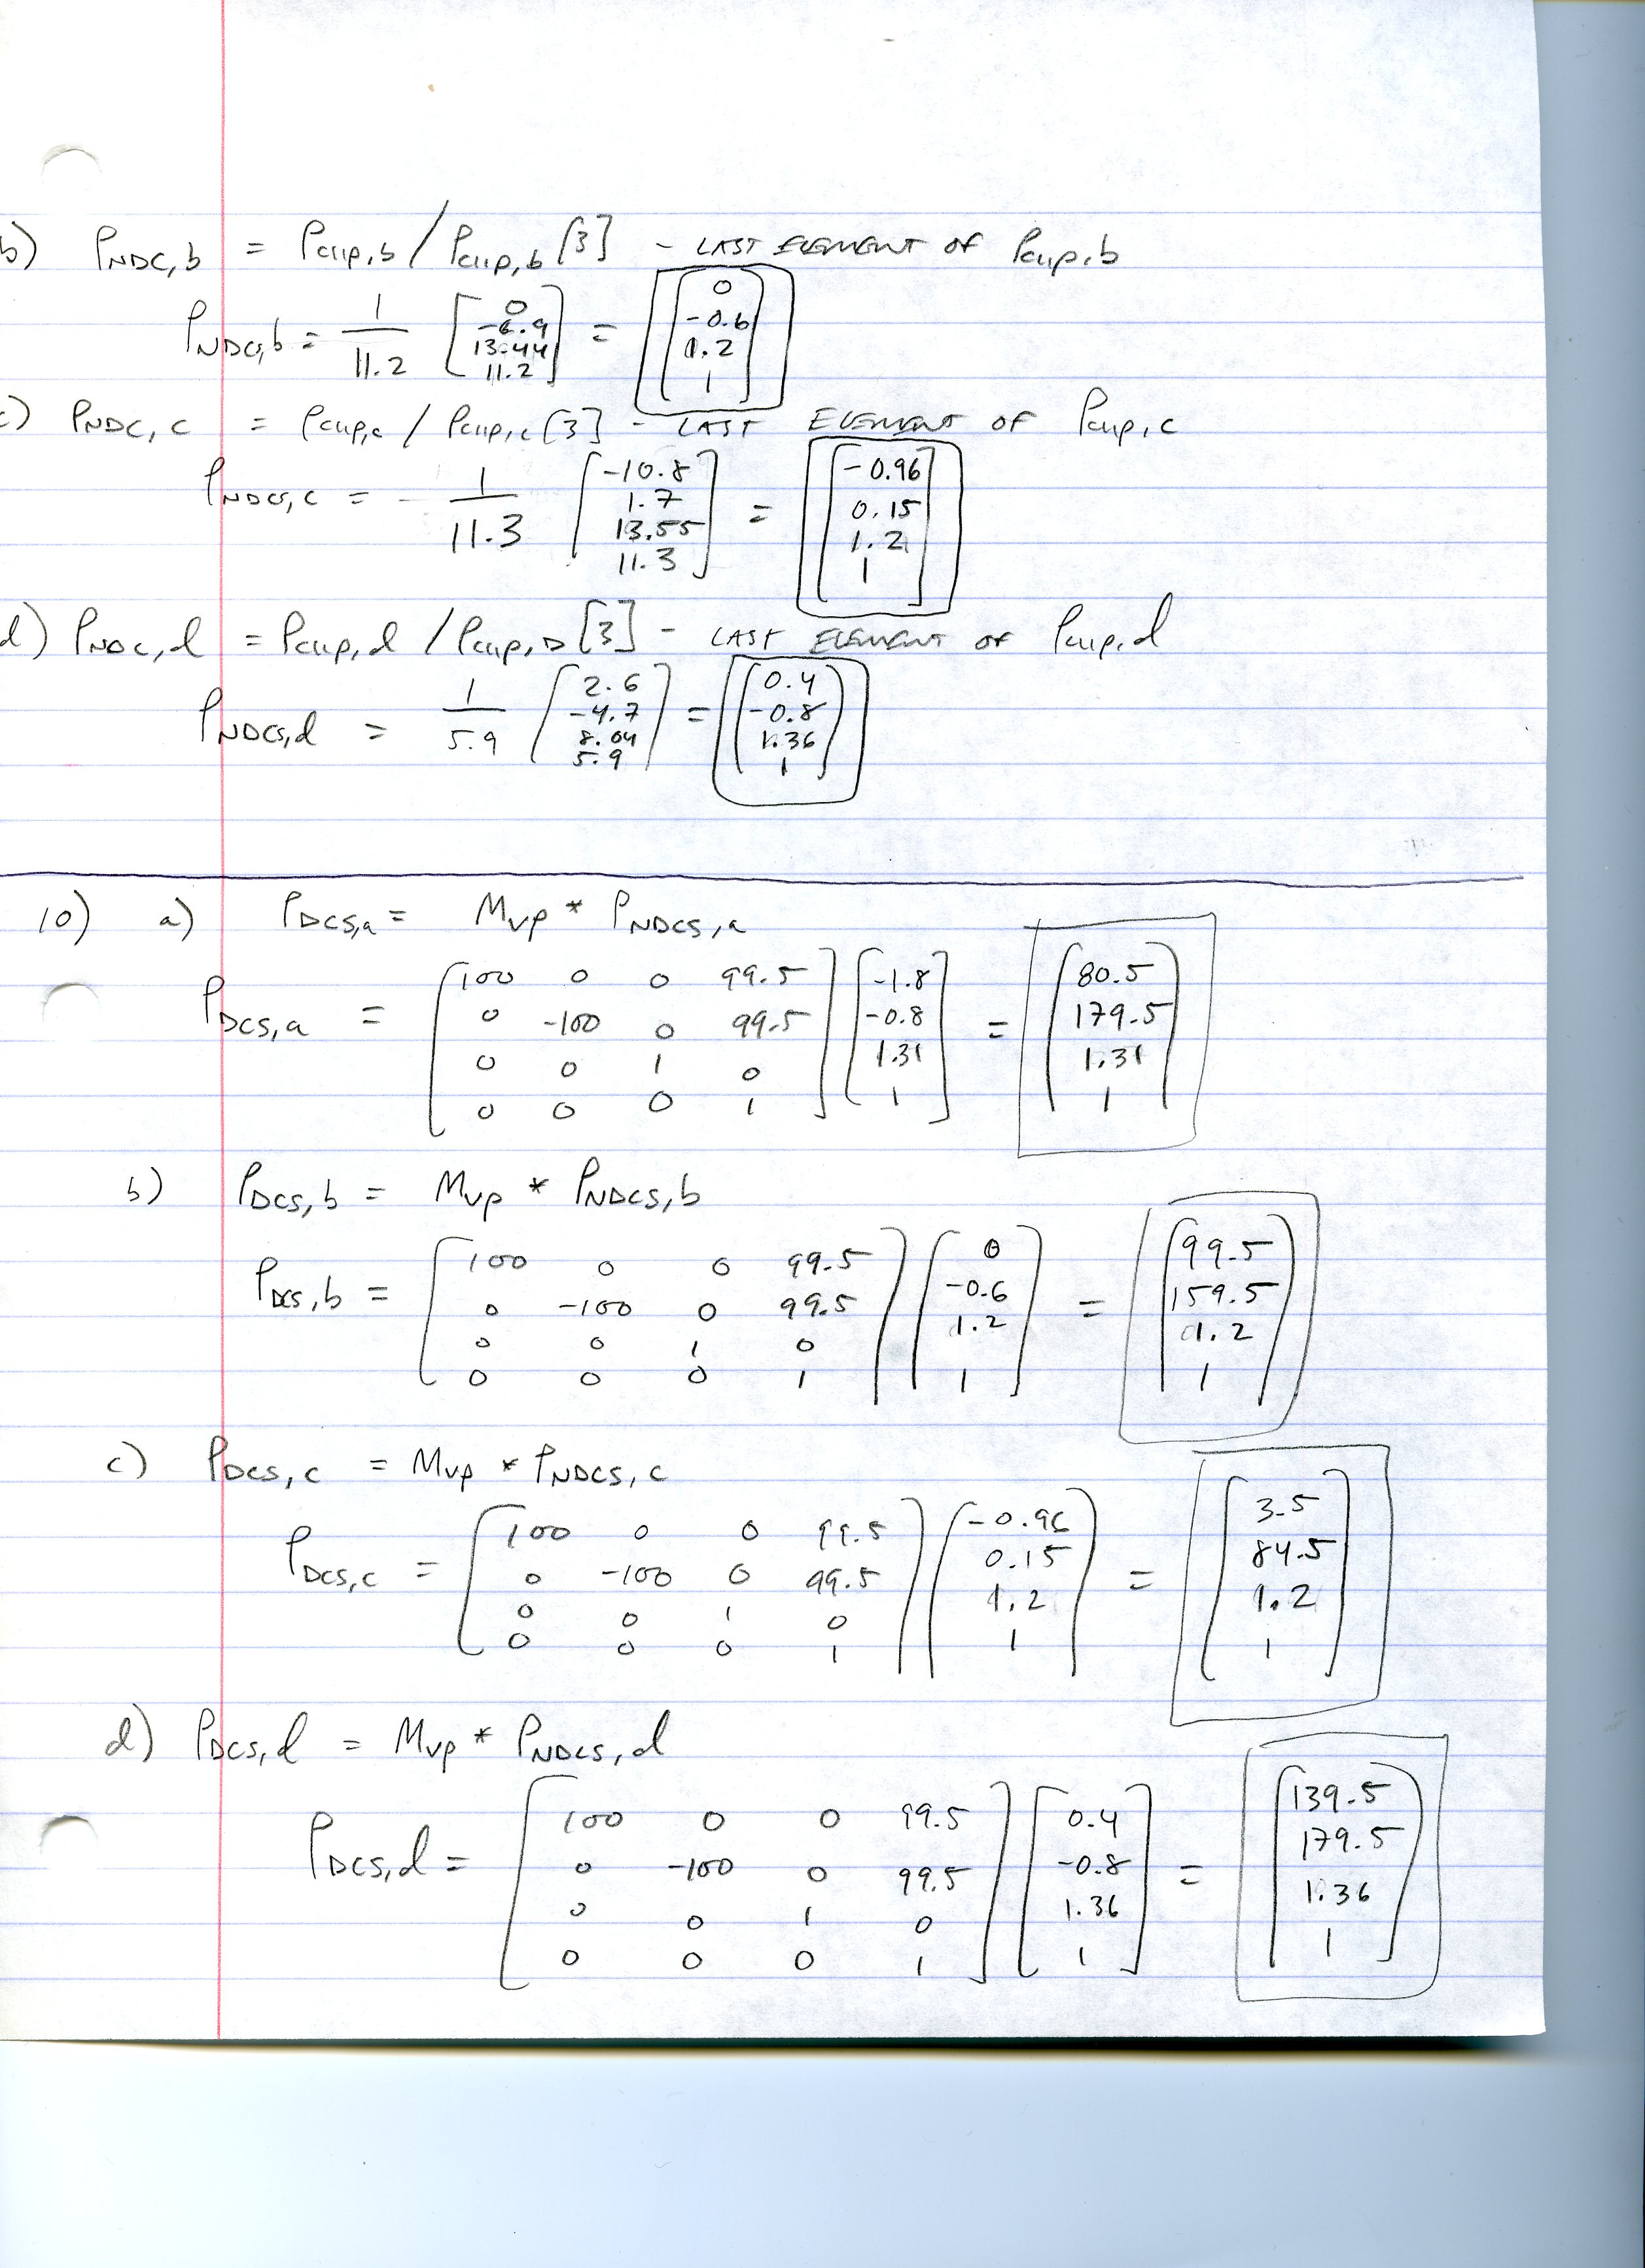 b) P_NDC,b = P_clip,b / P_clip,b [3] - LAST ELEMENT OF P_clip,b
P_NDCS,b = 1/11.2 [0 -6.9 13.44 11.2] = [0 -0.6 1.2 1]
c) P_NDC,c = P_clip,c / P_clip,c [3] - LAST ELEMENT OF P_clip,c
P_NDCS,c = - 1/11.3 [-10.8 1.7 13.55 11.3] = [-0.96 0.15 1.2 1]
d) P_NDC,d = P_clip,d / P_clip,D [3] - LAST ELEMENT OF P_clip,d
P_NDCS,d = 1/5.9 [2.6 -4.7 8.04 5.9] = [0.4 -0.8 1.36 1]
10) a) P_DCS,a = M_VP * P_NDCS,a
P_DCS,a =
[100 0 0 99.5] [-1.8] [80.5]
[0 -100 0 99.5] [-0.8] = [179.5]
[0 0 1 0] [1.31] [1.31]
[0 0 0 1] [1] [1]
b) P_DCS,b = M_VP * P_NDCS,b
P_DCS,b =
[100 0 0 99.5] [0] [99.5]
[0 -100 0 99.5] [-0.6] = [159.5]
[0 0 1 0] [1.2] [1.2]
[0 0 0 1] [1] [1]
c) P_DCS,c = M_VP * P_NDCS,c
P_DCS,c =
[100 0 0 99.5] [-0.96] [3.5]
[0 -100 0 99.5] [0.15] = [84.5]
[0 0 1 0] [1.2] [1.2]
[0 0 0 1] [1] [1]
d) P_DCS,d = M_VP * P_NDCS,d
P_DCS,d =
[100 0 0 99.5] [0.4] [139.5]
[0 -100 0 99.5] [-0.8] = [179.5]
[0 0 1 0] [1.36] [1.36]
[0 0 0 1] [1] [1]